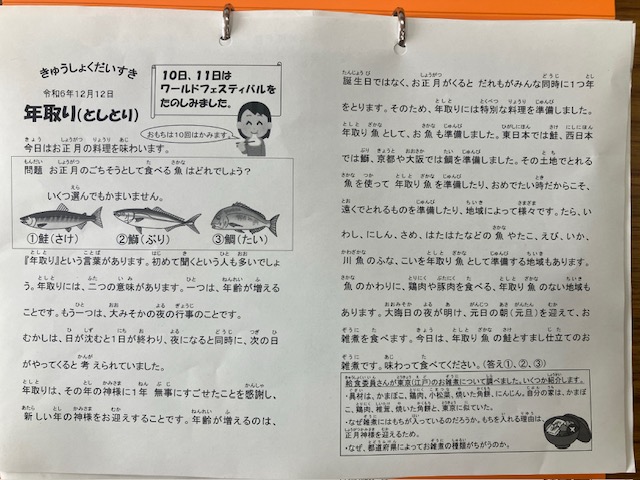 きゅうしょくだいすき
令和6年12月12日
年取り(としとり)
10日、11日は
ワールドフェスティバルを
たのしみました。
おもちは10回はかみます。
今日はお正月の料理を味わいます。
問題 お正月のごちそうとして食べる魚はどれでしょう?
いくつ選んでもかまいません。
①鮭(さけ) ②鰤(ぶり) ③鯛(たい)
『年取り』という言葉があります。初めて聞くという人も多いでしょ
う。年取りには、二つの意味があります。一つは、年齢が増える
ことです。もう一つは、大みそかの夜の行事のことです。
むかしは、日が沈むと1日が終わり、夜になると同時に、次の日
がやってくると考えられていました。
年取りは、その年の神様に1年無事にすごせたことを感謝し、
新しい年の神様をお迎えすることです。年齢が増えるのは、
誕生日ではなく、お正月がくるとだれもがみんな同時に1つ年
をとります。そのため、年取りには特別な料理を準備しました。
年取り魚として、お魚も準備しました。東日本では鮭、西日本
では鰤、京都や大阪では鯛を準備しました。その土地でとれる
魚を使って年取り魚を準備したり、おめでたい時だからこそ、
遠くでとれるものを準備したり、地域によって様々です。たら、い
わし、にしん、さめ、はたはたなどの魚やたこ、えび、いか、
川魚のふな、こいを年取り魚として準備する地域もあります。
魚のかわりに、鶏肉や豚肉を食べる、年取り魚のない地域も
あります。大晦日の夜が明け、元日の朝(元旦)を迎えて、お
雑煮を食べます。今日は、年取り魚の鮭とすまし仕立てのお
雑煮です。味わって食べてください。(答え①、②、③)
給食委員さんが東京(江戸)のお雑煮について調べました。いくつか紹介します。
・具材は、かまぼこ、鶏肉、小松菜、焼いた角餅、にんじん。自分の家は、かまぼ
こ、鶏肉、椎茸、焼いた角餅と、東京に似ていた。
・なぜ雑煮にはもちが入っているのだろうか。もちを入れる理由は、
正月神様を迎えるため。
・なぜ、都道府県によってお雑煮の種類がちがうのか。